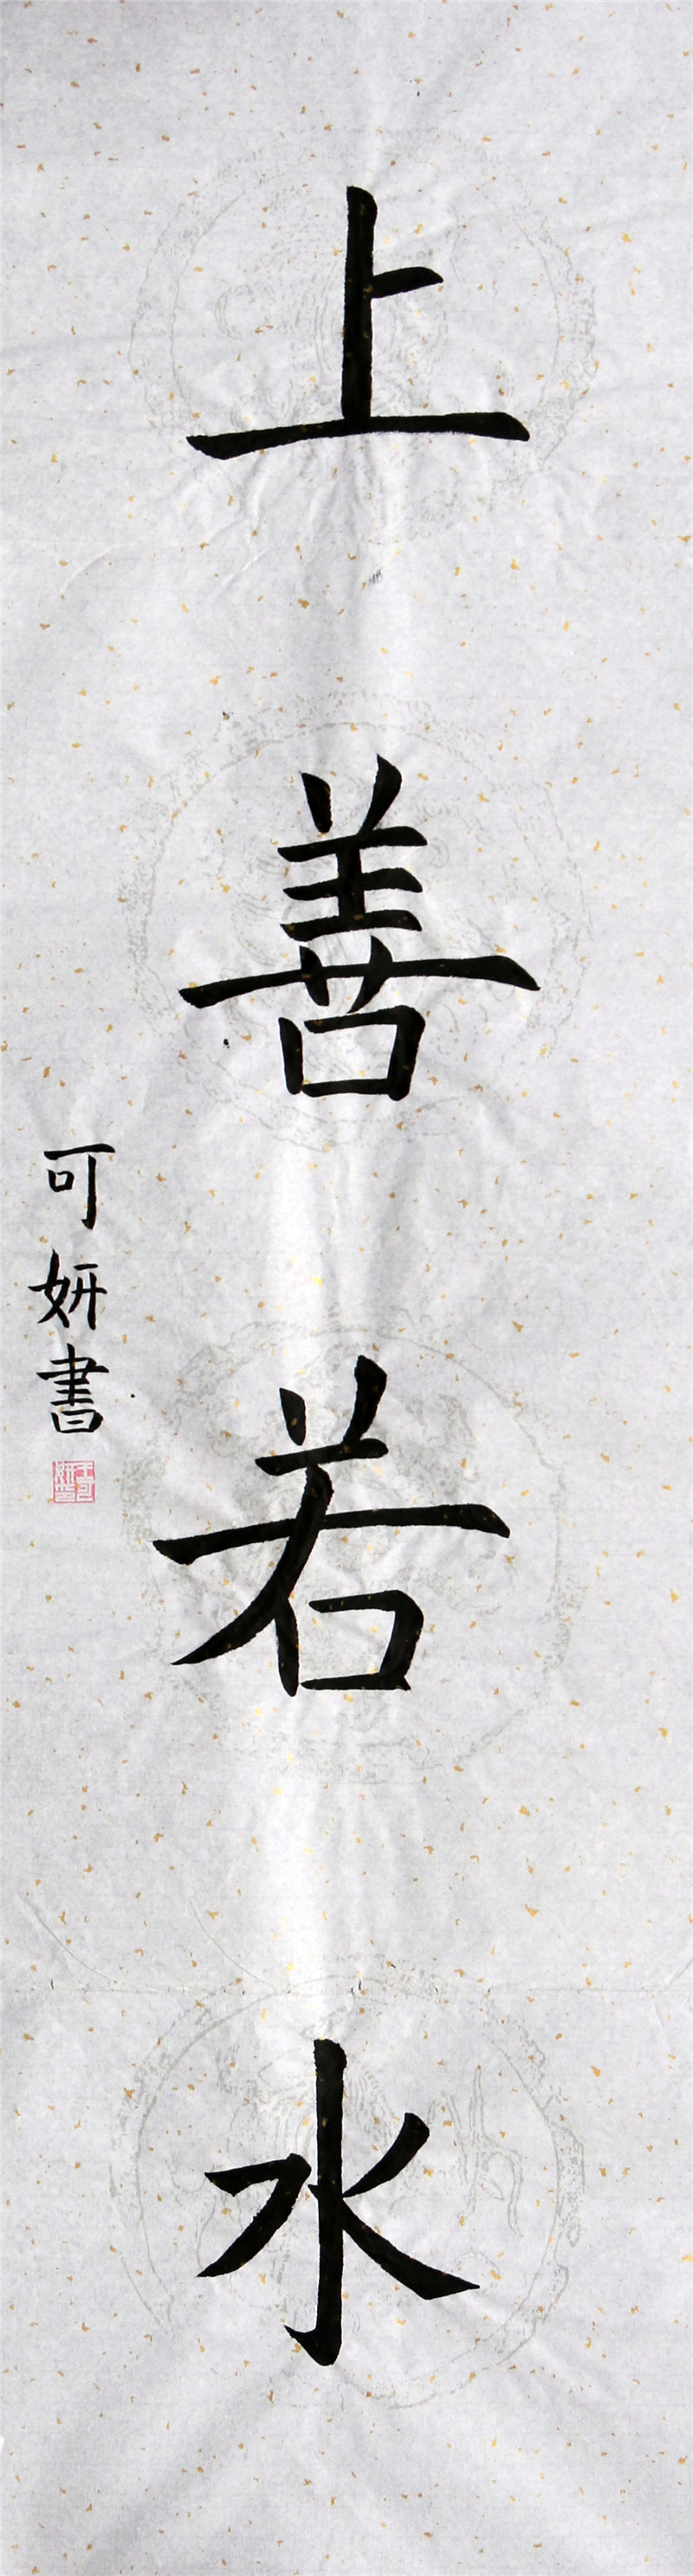 上善若水
可妍書